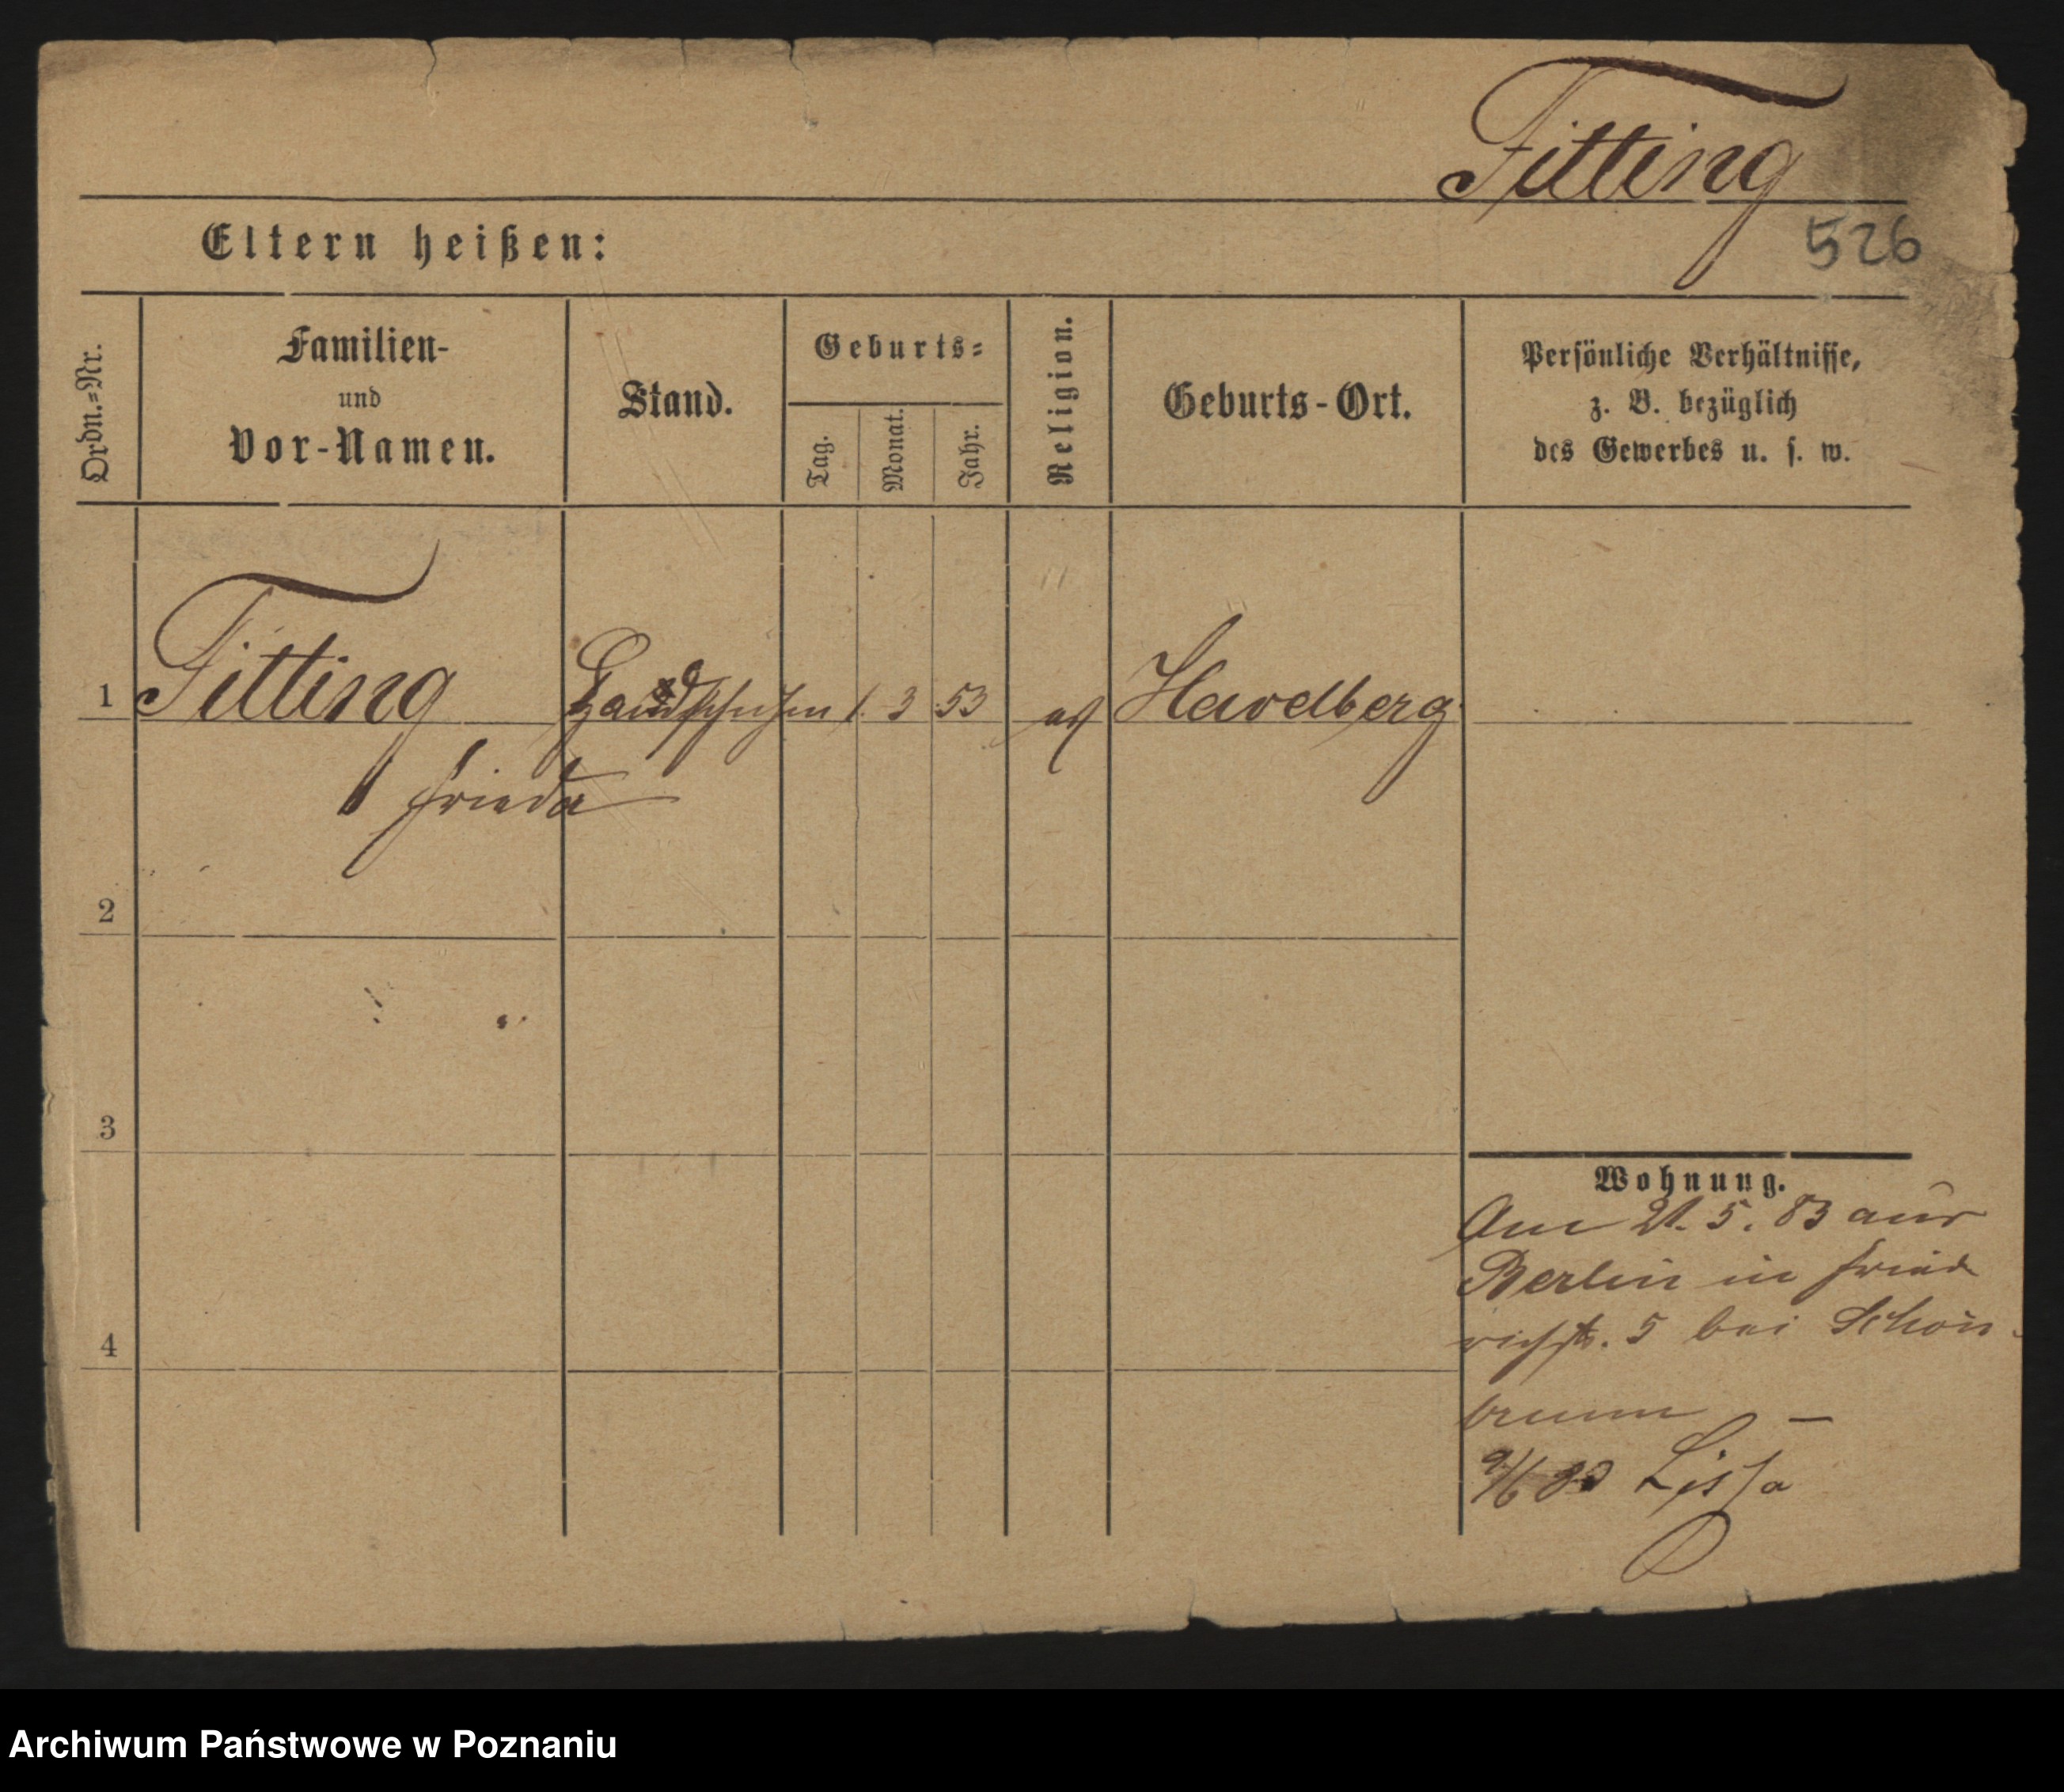 Fitting
526
Eltern heißen:
Ordn.=Nr.
Familien-
und
Vor-Namen.
Stand.
Geburts=
Tag.
Monat.
Jahr.
Religion.
Geburts-Ort.
Persönliche Verhältnisse,
z. B. bezüglich
des Gewerbes u. s. w.
1 Fitting 1. 3 53 Havelberg
Frieda
2
3
4
Wohnung.
Am 21. 5. 83 aus
Berlin in Fried
richstr. 5 bei Schön-
brunn —
9/6 83 Lissa
Archiwum Państwowe w Poznaniu